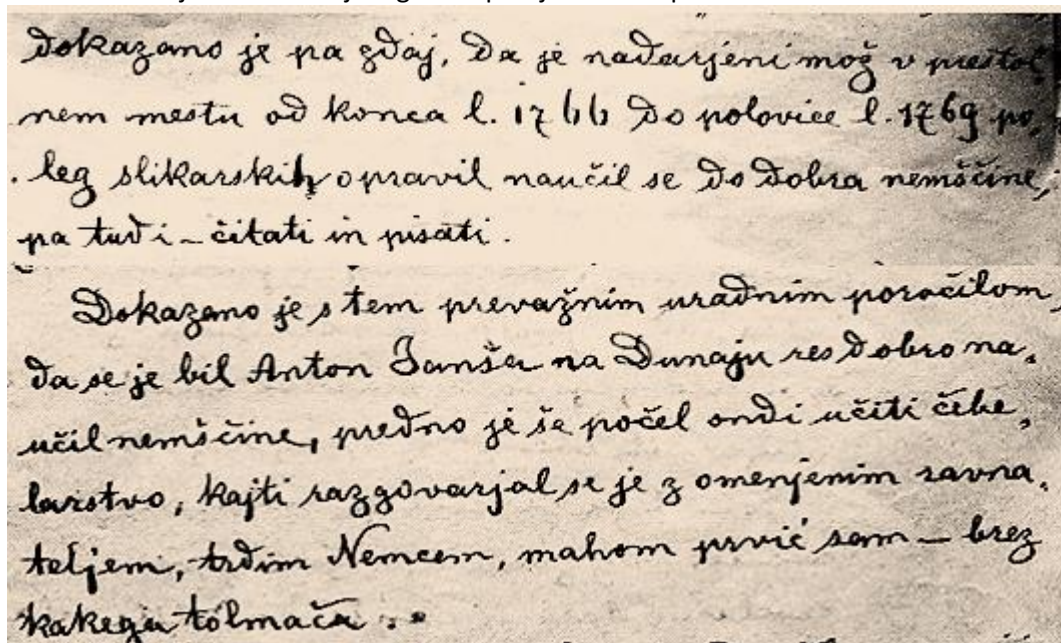 dokazano je pa zdaj, da je nadarjeni mož v prestol
nem mestu od konca l. 1766 do polovice l. 1769 po,
leg slikarskih opravil naučil se do dobra nemščine,
pa tudi – čitati in pisati.
Dokazano je s tem prevažnim uradnim poročilom,
da se je bil Anton Janša na Dunaju res dobro na,
učil nemščine, predno je še počel ondi učiti čebe,
larstvo, kajti razgovarjal se je z omenjenim ravna,
teljem, trdim Nemcem, mahom prvič sam – brez
kakega tolmača . .